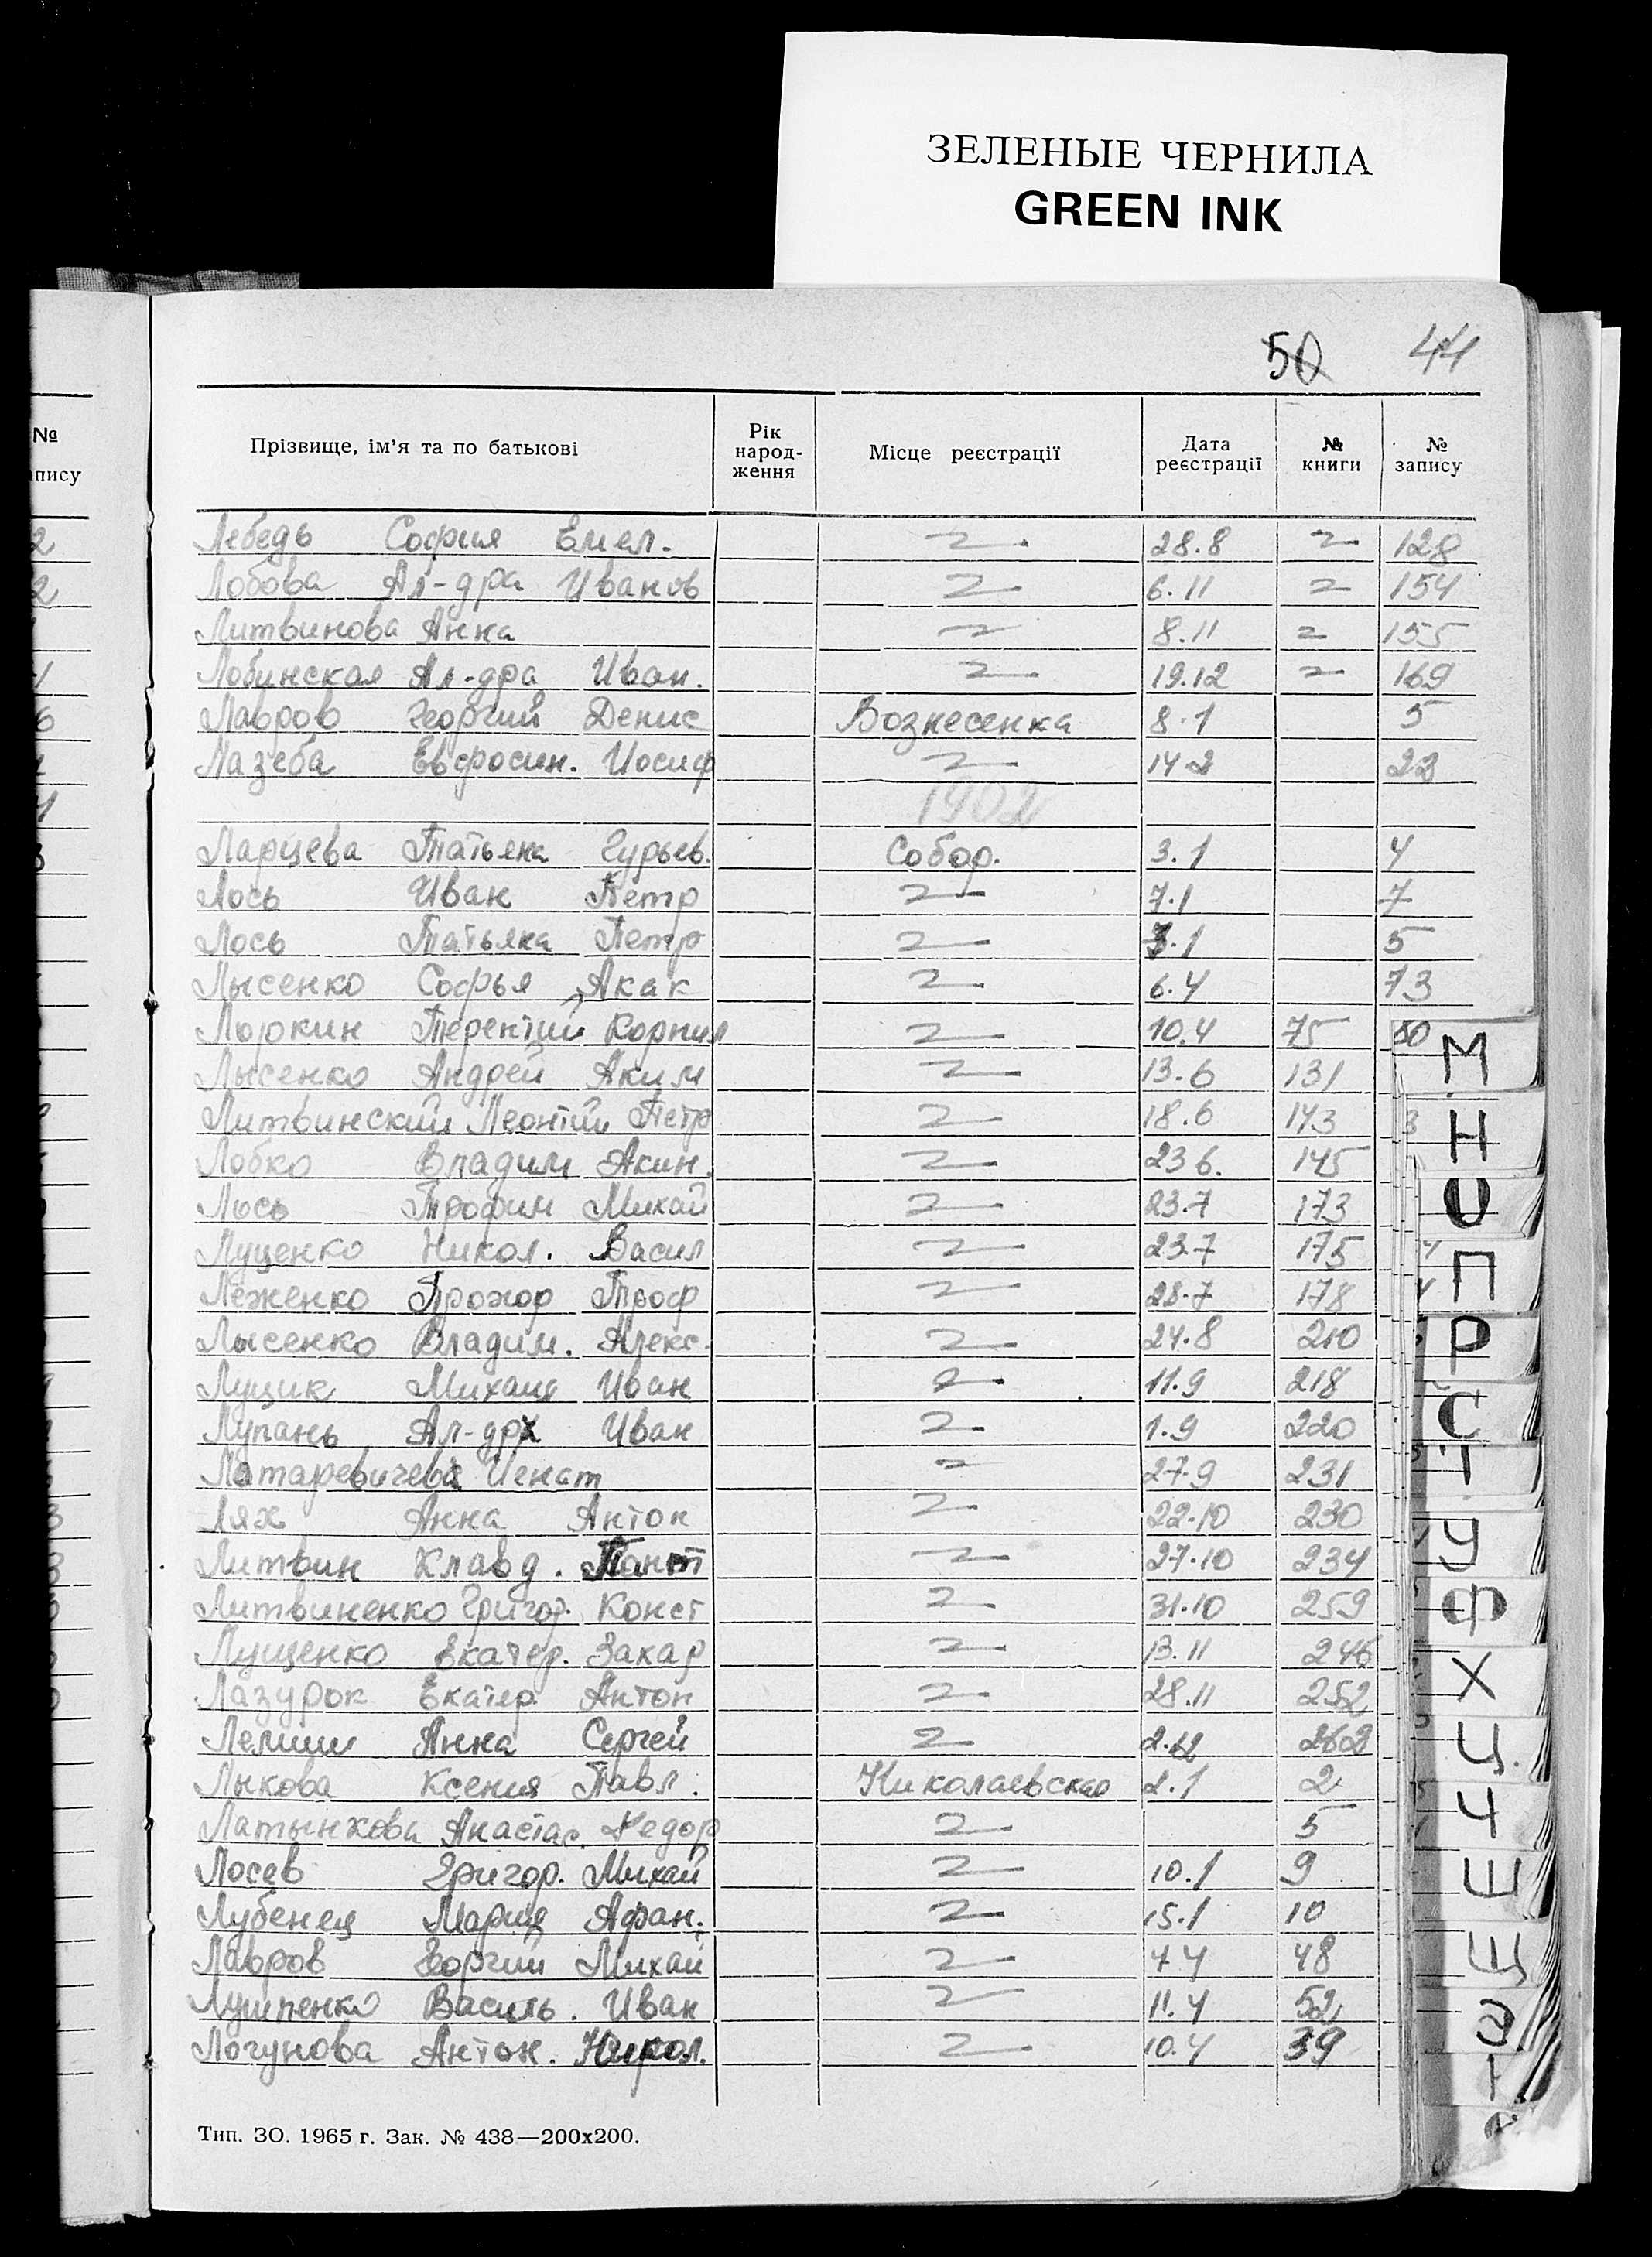 ЗЕЛЕНЫЕ ЧЕРНИЛА
GREEN INK
50 44
Прізвище, ім'я та по батькові Рік народження Місце реєстрації Дата реєстрації № книги № запису
Лебедь София Емел. 28.8 128
Лобова Ал-дра Иванов 6.11 154
Литвинова Анна 8.11 155
Лобинская Ал-дра Иван. 19.12 169
Лавров Георгий Денис Вознесенка 8.1 5
Лазеба Евфросин. Иосиф 14 2 22
1902
Ларцева Татьяна Гурьев. Собор. 3.1 4
Лось Иван Петр 7.1 7
Лось Татьяна Петр 3.1 5
Лысенко Софья Акак 6.4 73
Терентий Корнил 10.4 75 50
Лысенко Андрей Аким 13.6 131
Литвинский Леонтий Петр 18.6 143
Лобко Владим Акин. 23 6. 145
Лось Трофим Михай 23.7 173
Луценко Никол. Васил 23.7 175
Леженко Прохор Троф 28.7 178
Лысенко Владим. Алекс. 24.8 210
Луцик Михаил Иван 11.9 218
Лупань Ал-др Иван 1.9 220
Игнат 27.9 231
Лях Анна Антон 22.10 230
Литвин Клавд. Пант 27.10 234
Литвиненко Григор. Конст 31.10 259
Лущенко Екатер. Захар 13.11 246
Лазурок Екатер Антон 28.11 252
Лемиш Анна Сергей 2.12 262
Лыкова Ксения Павл. Николаевская 2.1 2
Анастас. Федор 5
Лосев Григор. Михай 10.1 9
Лубенец Мария Афан. 15.1 10
Лавров Георгий Михай 7 4 48
Лушпенко Василь. Иван 11.4 52
Логунова Антон. Никол. 10.4 39
Тип. ЗО. 1965 г. Зак. № 438—200х200.
М
Н
О
П
Р
С
Т
У
Ф
Х
Ц
Ч
Ш
Щ
Э